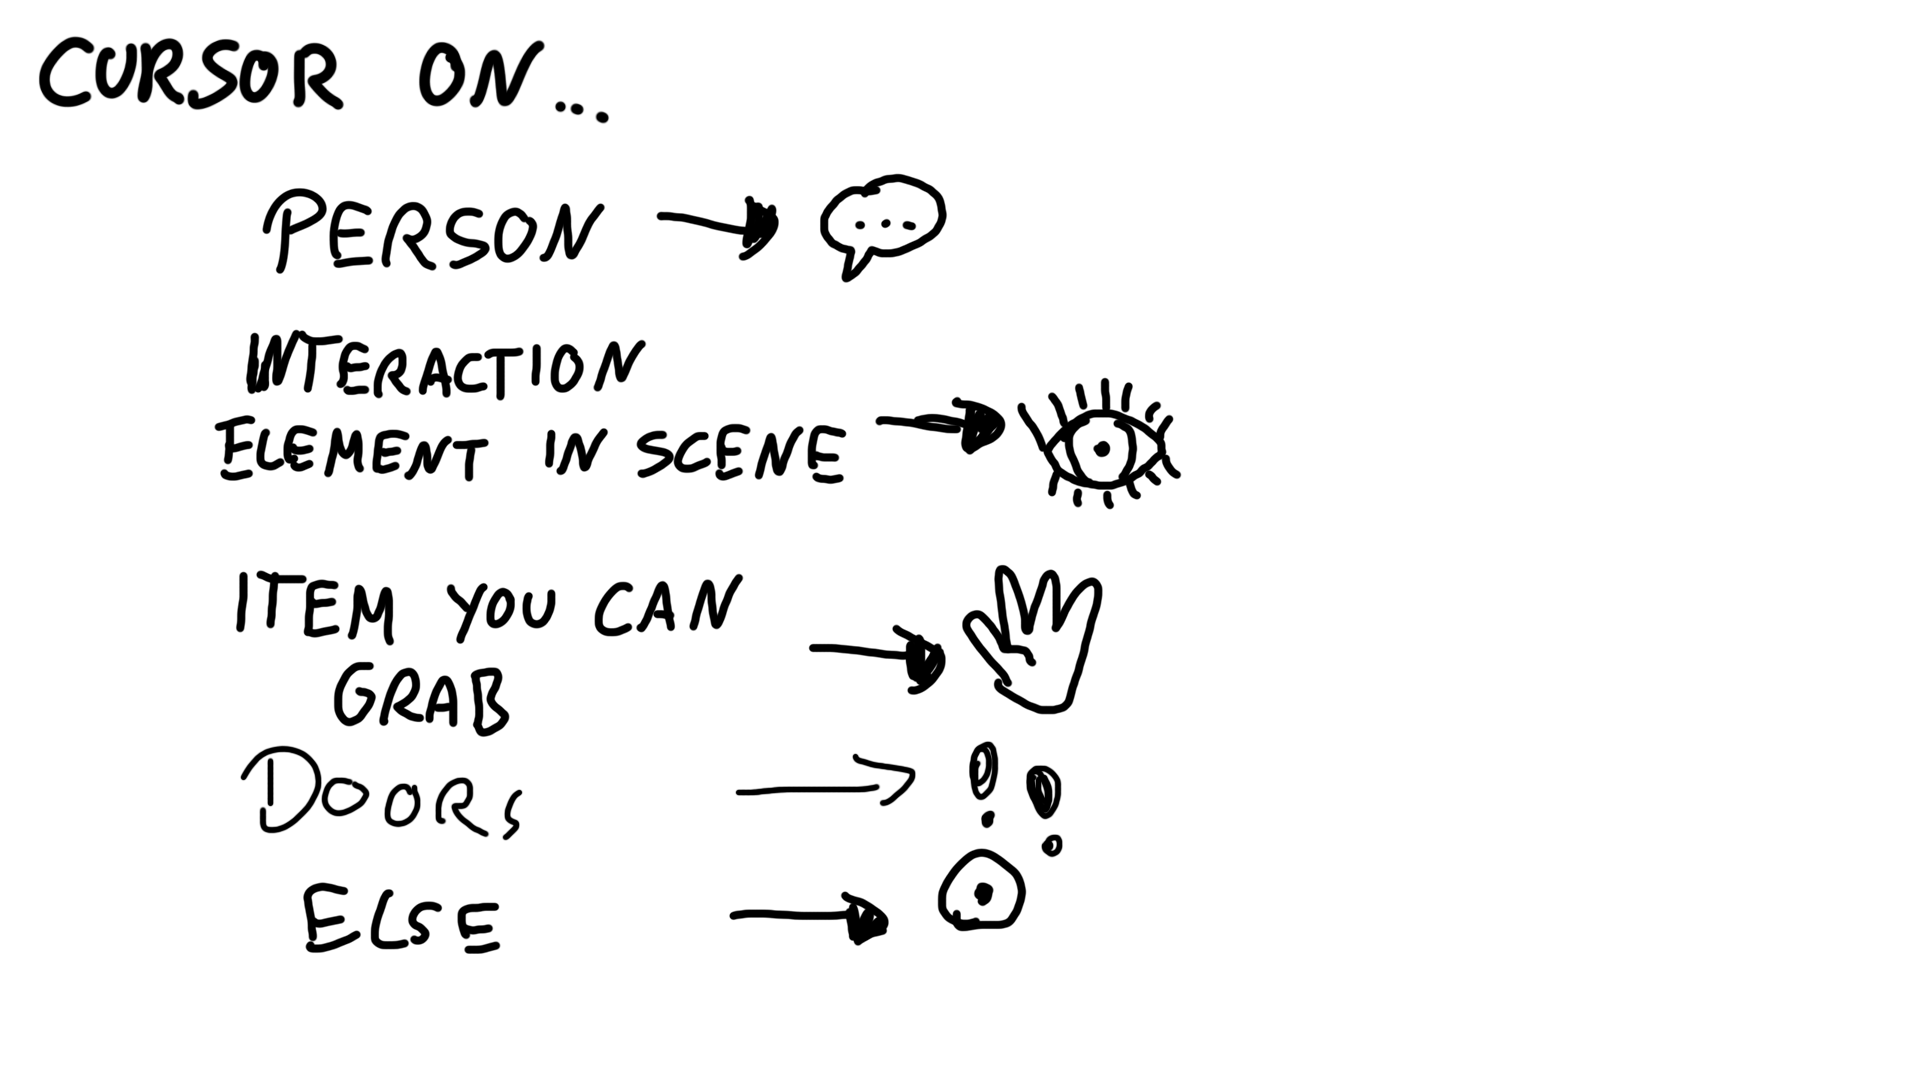 CURSOR ON...
PERSON
INTERACTION
ELEMENT IN SCENE
ITEM YOU CAN
GRAB
DOORS
ELSE